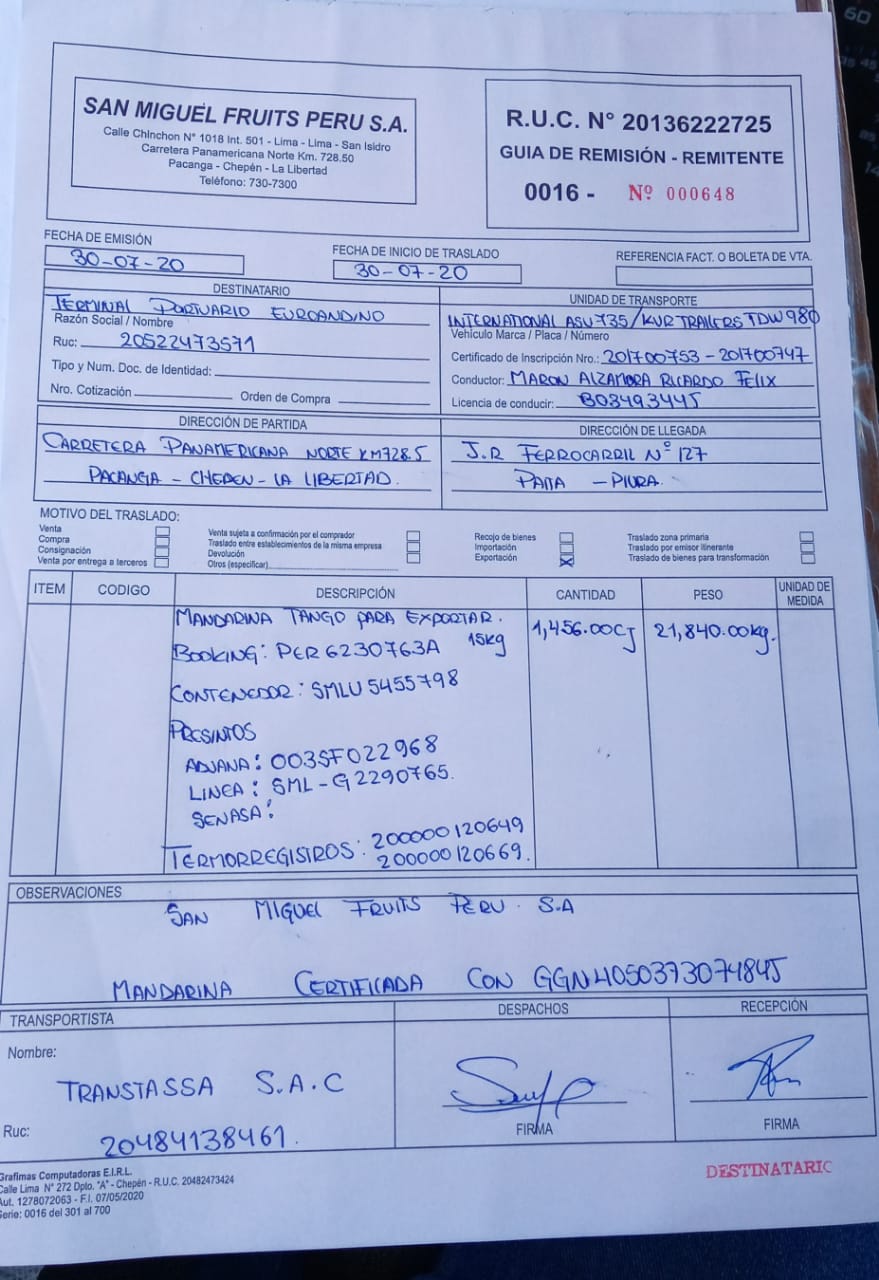 SAN MIGUEL FRUITS PERU S.A.
Calle Chinchon N° 1018 Int. 501 - Lima - Lima - San Isidro
Carretera Panamericana Norte Km. 728.50
Pacanga - Chepén - La Libertad
Teléfono: 730-7300
R.U.C. N° 20136222725
GUIA DE REMISIÓN - REMITENTE
0016 - Nº 000648
FECHA DE EMISIÓN
30-07-20
FECHA DE INICIO DE TRASLADO
30-07-20
REFERENCIA FACT. O BOLETA DE VTA.
DESTINATARIO
TERMINAL PORTUARIO EUROANDINO
Razón Social / Nombre
Ruc: 20522473571
Tipo y Num. Doc. de Identidad:
Nro. Cotización Orden de Compra
UNIDAD DE TRANSPORTE
INTERNATIONAL ASU735/KUR TRAILERS TDW980
Vehículo Marca / Placa / Número
Certificado de Inscripción Nro.: 201700753-201700747
Conductor: MARON ALZAMORA RICARDO FELIX
Licencia de conducir: B03493445
DIRECCIÓN DE PARTIDA
CARRETERA PANAMERICANA NORTE KM728.5
PACANGA - CHEPEN - LA LIBERTAD.
DIRECCIÓN DE LLEGADA
J.R FERROCARRIL N° 127
PAITA - PIURA.
MOTIVO DEL TRASLADO:
Venta
Compra
Consignación
Venta por entrega a terceros
Venta sujeta a confirmación por el comprador
Traslado entre establecimientos de la misma empresa
Devolución
Otros (especificar)
Recojo de bienes
Importación
Exportación X
Traslado zona primaria
Traslado por emisor itinerante
Traslado de bienes para transformación
ITEM CODIGO DESCRIPCIÓN CANTIDAD PESO UNIDAD DE MEDIDA
MANDARINA TANGO PARA EXPORTAR. 1,456.00CJ 21,840.00kg.
BOOKING: PER6230763A 15kg
CONTENEDOR: SMLU 5455798
PRESINTOS
ADUANA: 003SF022968
LINEA: SML-G2290765.
SENASA:
TERMORREGISTROS: 200000120649
200000120669.
OBSERVACIONES
SAN MIGUEL FRUITS PERU S.A
MANDARINA CERTIFICADA CON GGN4050373074845
TRANSPORTISTA
Nombre:
TRANSTASSA S.A.C
Ruc:
20484138461.
DESPACHOS
FIRMA
RECEPCIÓN
FIRMA
Grafimas Computadoras E.I.R.L.
Calle Lima N° 272 Dpto. "A" - Chepén - R.U.C. 20482473424
Aut. 1278072063 - F.I. 07/05/2020
Serie: 0016 del 301 al 700
DESTINATARIO